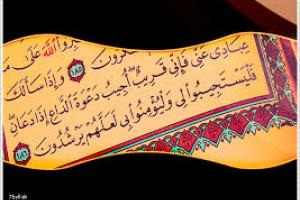 اللَّهَ عَلَىٰ
١٨٥ وَإِذَا سَأَلَكَ
عِبَادِي عَنِّي فَإِنِّي قَرِيبٌ أُجِيبُ دَعْوَةَ الدَّاعِ إِذَا دَعَانِ
فَلْيَسْتَجِيبُوا لِي وَلْيُؤْمِنُوا بِي لَعَلَّهُمْ يَرْشُدُونَ ١٨٦